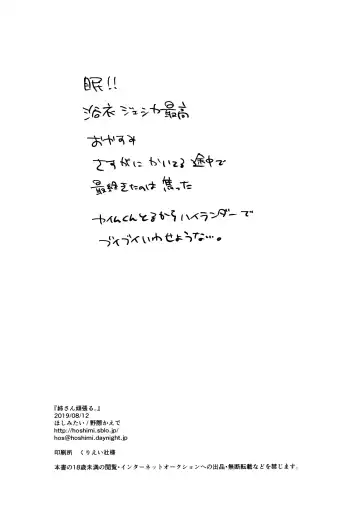 眠!!
浴衣ジェシカ最高
おやすみ
さすがにかいてる途中で
最終きたのは焦った
カイムくんとるからハイランダーで
ブイブイいわせような…。
『姉さん頑張る。』
2019/08/12
ほしみたい/野際かえで
http://hoshimi.sblo.jp/
hos@hoshimi.daynight.jp
印刷所 くりえい社様
本書の18歳未満の閲覧・インターネットオークションへの出品・無断転載などを禁じます。